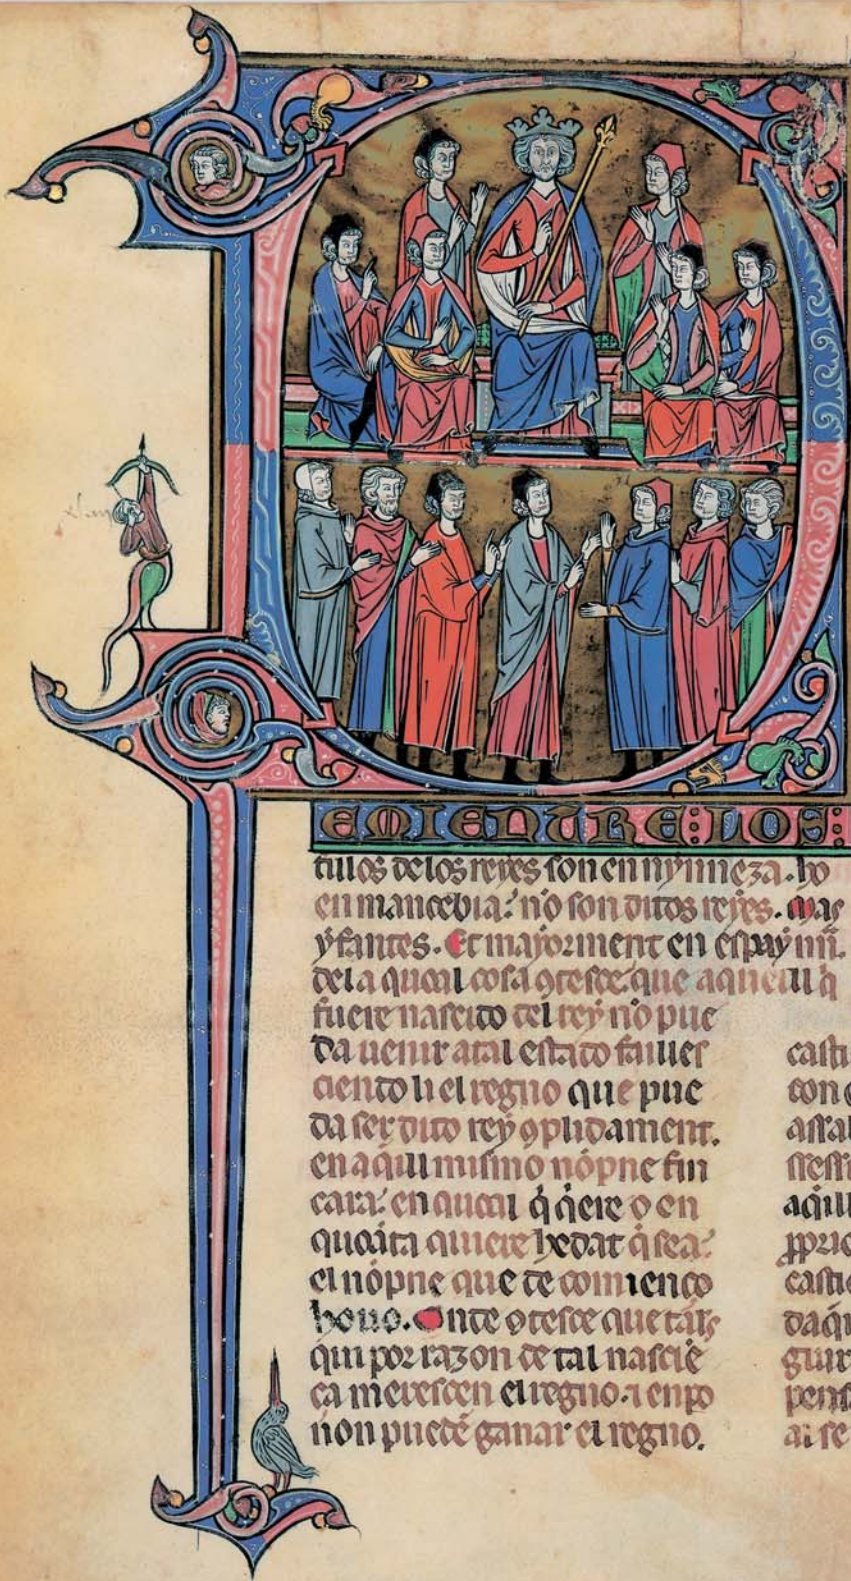 DEMIENTRE: LOS:
fillos delos reyes son en nynneza. ho
en mancebia: nõ son ditos reyes. Mas
yfantes. Et mayorment en espaynña.
dela quoal cosa ꝯtesce: que aqueill q̃
fuere nascido del rey nõ pue
da uenir atal estado failles
ciendo li el regno que pue
da ser dito rey ꝯplidament.
en aq̃ill mismo nõpne fin
cara: en quoal q̃ q̃ere o en
quoãta quiere hedat q̃ sea:
el nõpne que de comienço
houo. Onde ꝯtesce que tãls
qui por razon de tal nascie
ça merescen el regno. ⁊ enꝑo
non puedẽ ganar el regno.
casti
con
assal
ssessi
aq̃ill
casti
daq̃
guar
pens
ai se